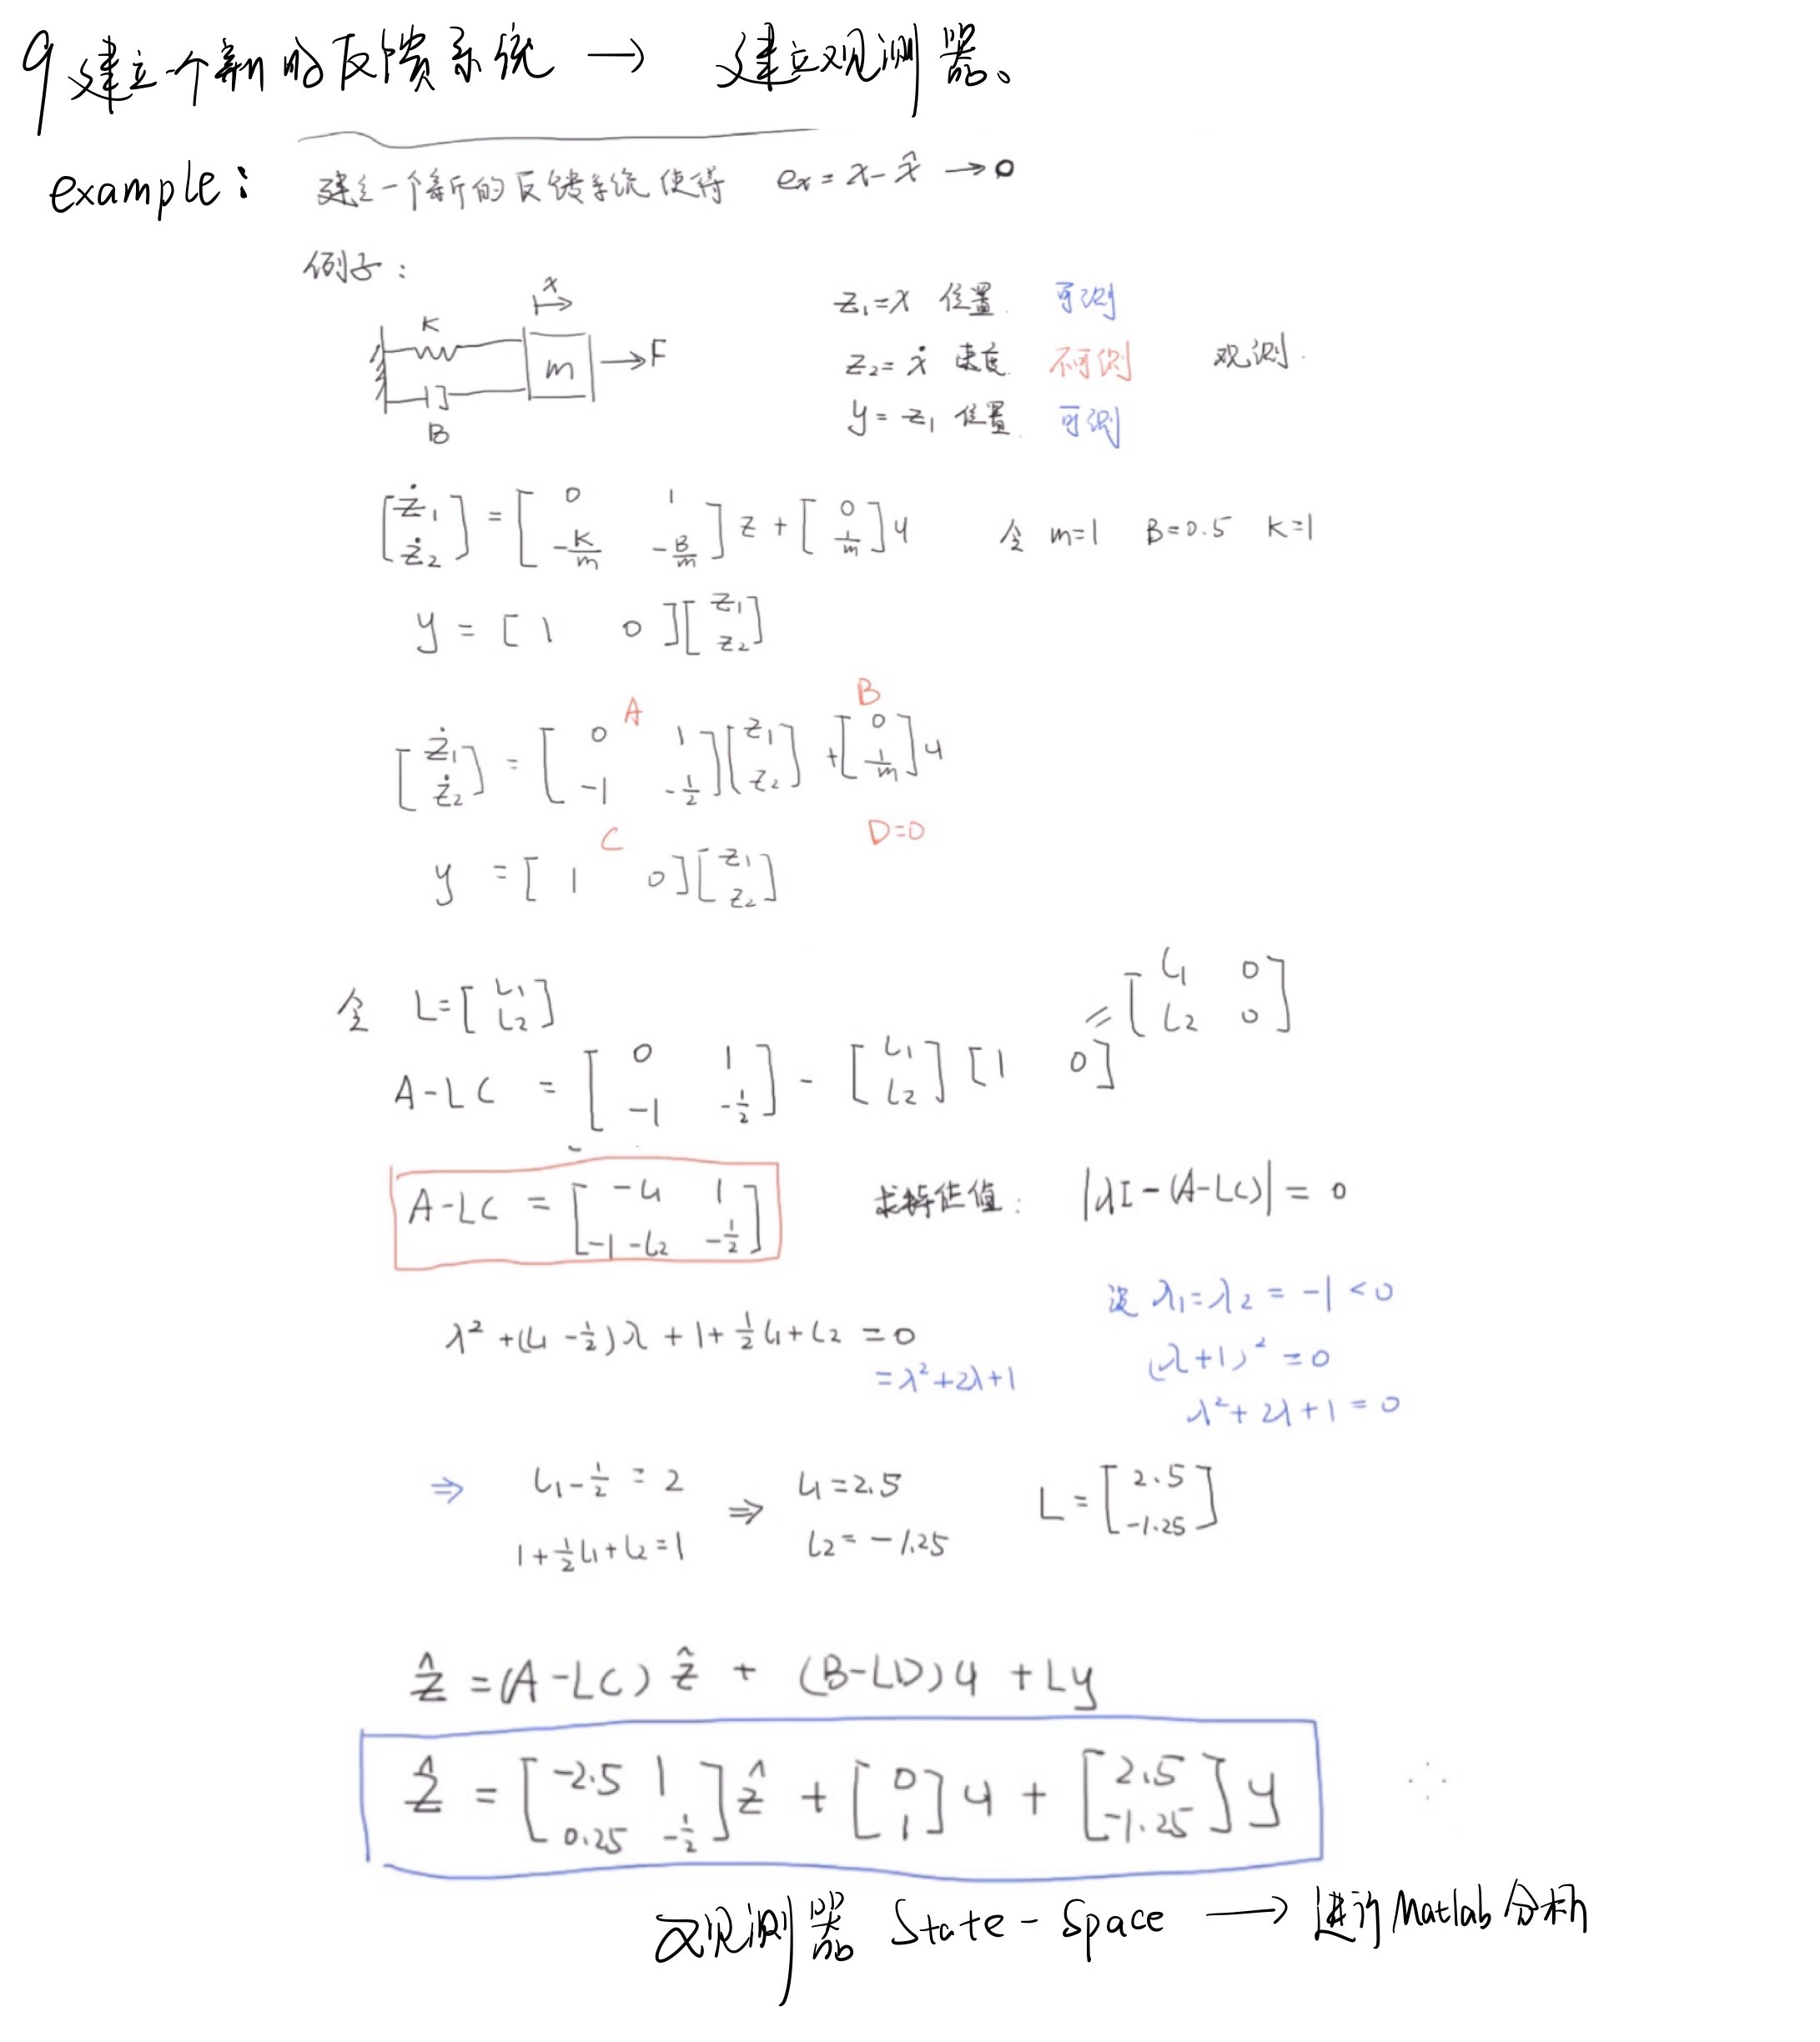 9 建立一个新的反馈系统 → 建立观测器。
example: 建立一个新的反馈系统使得 eₓ = x - x̂ → 0
例子:
x
K
m → F
B
z₁ = x 位置 可测
z₂ = ẋ 速度 不可测 观测.
y = z₁ 位置 可测
[ż₁; ż₂] = [0 1; -K/m -B/m] z + [0; 1/m] u 令 m=1 B=0.5 K=1
y = [1 0][z₁; z₂]
A B
[ż₁; ż₂] = [0 1; -1 -1/2][z₁; z₂] + [0; 1/m] u
C D=0
y = [1 0][z₁; z₂]
令 L = [L₁; L₂] = [L₁ 0; L₂ 0]
A-LC = [0 1; -1 -1/2] - [L₁; L₂][1 0]
A-LC = [-L₁ 1; -1-L₂ -1/2] 求特征值: |λI-(A-LC)| = 0
设 λ₁=λ₂ = -1 < 0
λ² + (L₁ - 1/2)λ + 1 + 1/2 L₁ + L₂ = 0
(λ+1)² = 0
= λ²+2λ+1
λ²+2λ+1 = 0
⇒ L₁ - 1/2 = 2 ⇒ L₁ = 2.5 L = [2.5; -1.25]
1 + 1/2 L₁ + L₂ = 1 L₂ = -1.25
ẑ = (A-LC) ẑ + (B-LD)u + Ly
ẑ = [-2.5 1; 0.25 -1/2] ẑ + [0; 1] u + [2.5; -1.25] y
观测器 State-Space → 进行Matlab分析